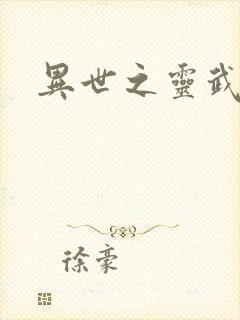 異世之靈武
徐豪